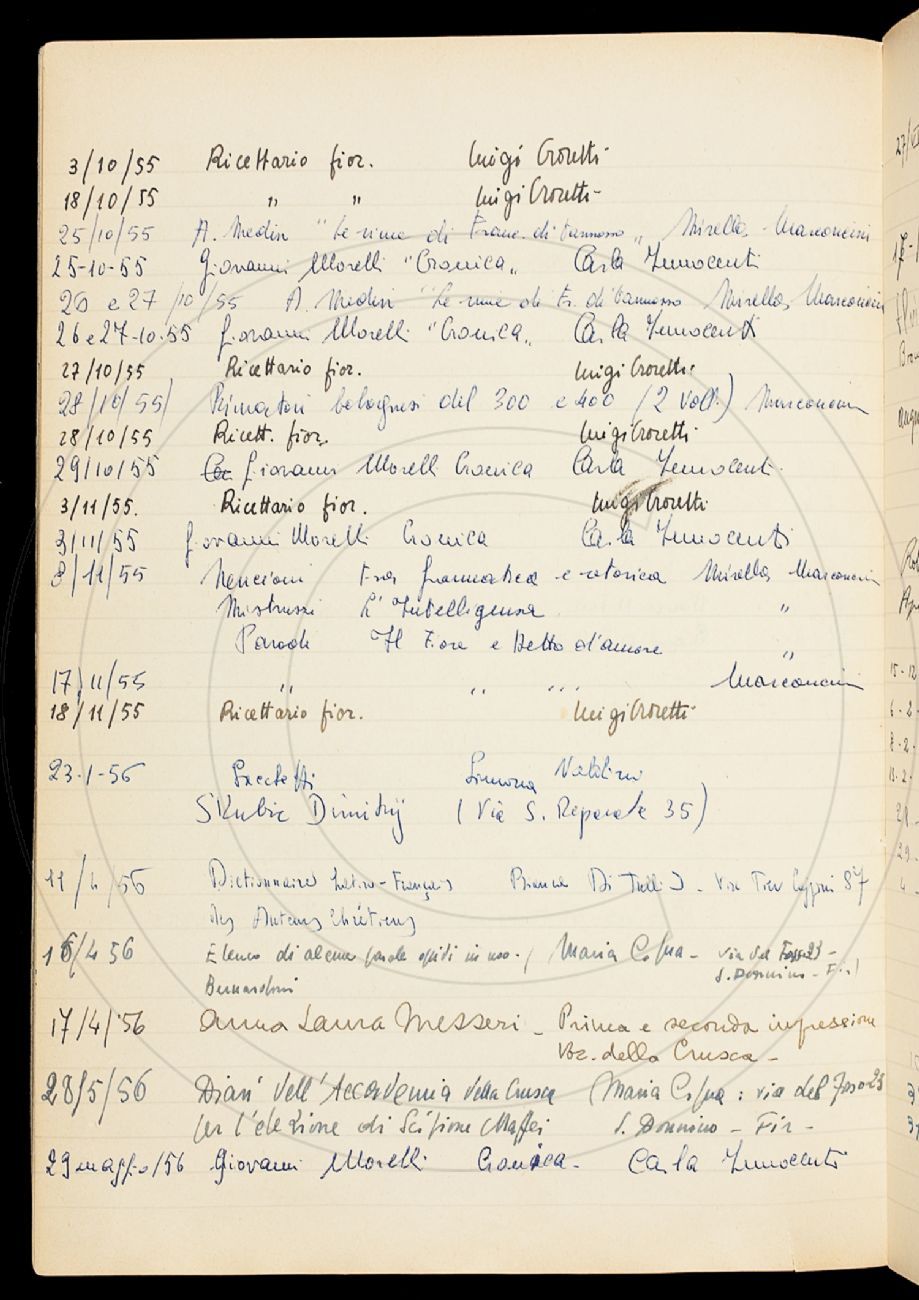 3/10/55 Ricettario fior. Luigi Crocetti
18/10/55 " " Luigi Crocetti
25/10/55 A. Medin "Le rime di Franc. di Vannozzo" Mirella Marconcini
25-10-55 Giovanni Morelli "Cronica" Carla Innocenti
26 e 27/10/55 A. Medin "Le rime di Fr. di Vannozzo Mirella Marconcini
26 e 27-10-55 Giovanni Morelli "Cronica" Carla Innocenti
27/10/55 Ricettario fior. Luigi Crocetti
28/10/55 Rimatori bolognesi del 300 e 400 (2 Voll.) Marconcini
28/10/55 Ricett. fior. Luigi Crocetti
29/10/55 Giovanni Morelli Cronica Carla Innocenti
3/11/55. Ricettario fior. Luigi Crocetti
3/11/55 Giovanni Morelli Cronica Carla Innocenti
8/11/55 Nencioni Fra grammatica e retorica Mirella Marconcini
Mistruzzi L'Intelligenza "
Parodi Il Fiore e Detto d'amore "
17/11/55 " " " Marconcini
18/11/55 Ricettario fior. Luigi Crocetti
23-1-56 Sacchetti Simona
Skubic Dimitrij (Via S. Reparata 35)
11/4/56 Dictionnaire Latin-Français Bianca Di - Via 87
des Auteurs Chrétiens
16/4 56 Elenco di alcune parole oggidì in uso. Maria - via del Fosso 23 -
Bernardoni S. Donnino - Fir)
17/4/56 Anna Laura Messeri - Prima e seconda impressione
Voc. della Crusca -
28/5/56 Diari dell'Accademia della Crusca (Maria : via del Fosso 23
per l'elezione di Scipione Maffei S. Donnino - Fir -
29 maggio/56 Giovanni Morelli Cronica - Carla Innocenti